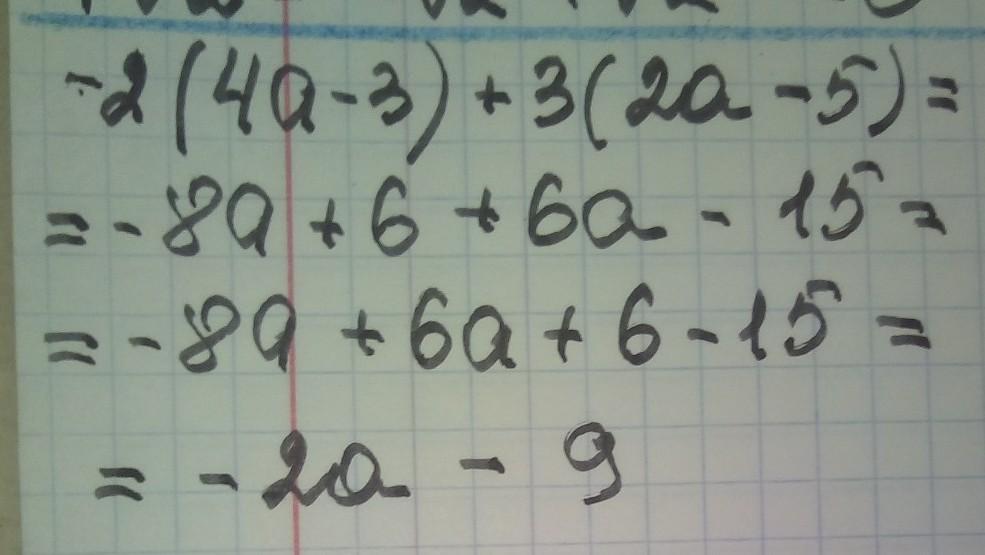 -2(4a-3)+3(2a-5)=
=-8a+6+6a-15=
=-8a+6a+6-15=
=-2a-9